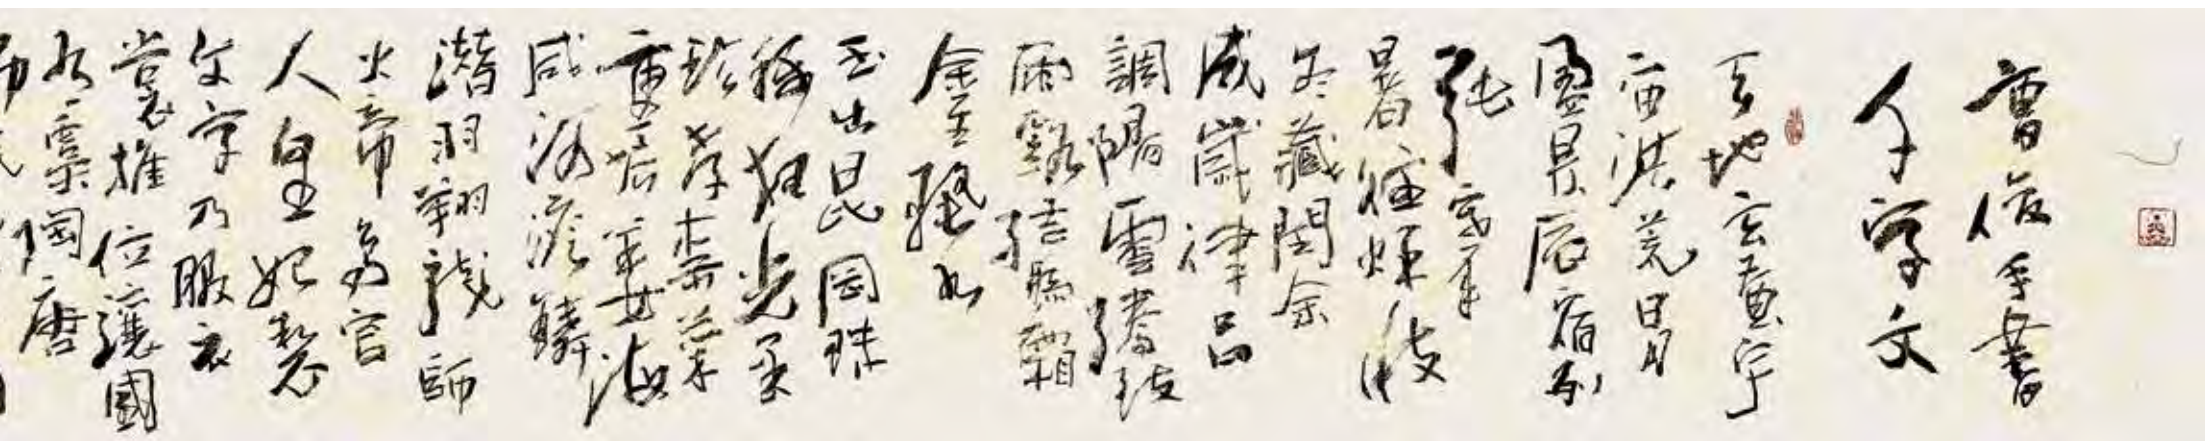 曹俊手書
千字文
天地玄黃宇
宙洪荒日月
盈昃辰宿列
張寒來
暑往秋收
冬藏閏余
成歲律呂
調陽雲騰致
雨露結為霜
金生麗水
玉出昆岡珠
稱夜光果
珍李柰菜
重芥薑海
咸河淡鱗
潛羽翔龍師
火帝鳥官
人皇始制
文字乃服衣
裳推位讓國
有虞陶唐